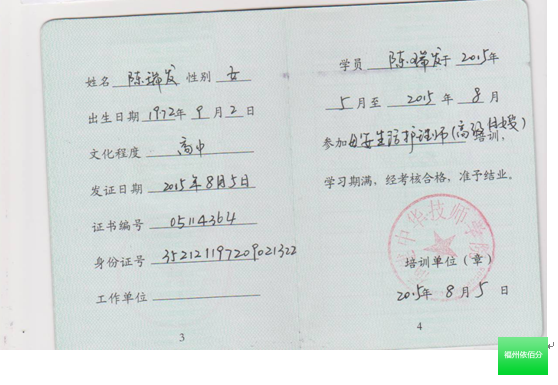 姓名 陈瑞发 性别 女
出生日期 1972年 9月 2日
文化程度 高中
发证日期 2015年8月5日
证书编号 05114364
身份证号 352121197209021322
工作单位
3
学员 陈瑞发于 2015年
5月至 2015年 8月
参加母婴生活护理师(高级技能)培训,
学习期满,经考核合格,准予结业。
中华技师学院
培训单位(章)
2015年 8月 5日
4
福州依佰分